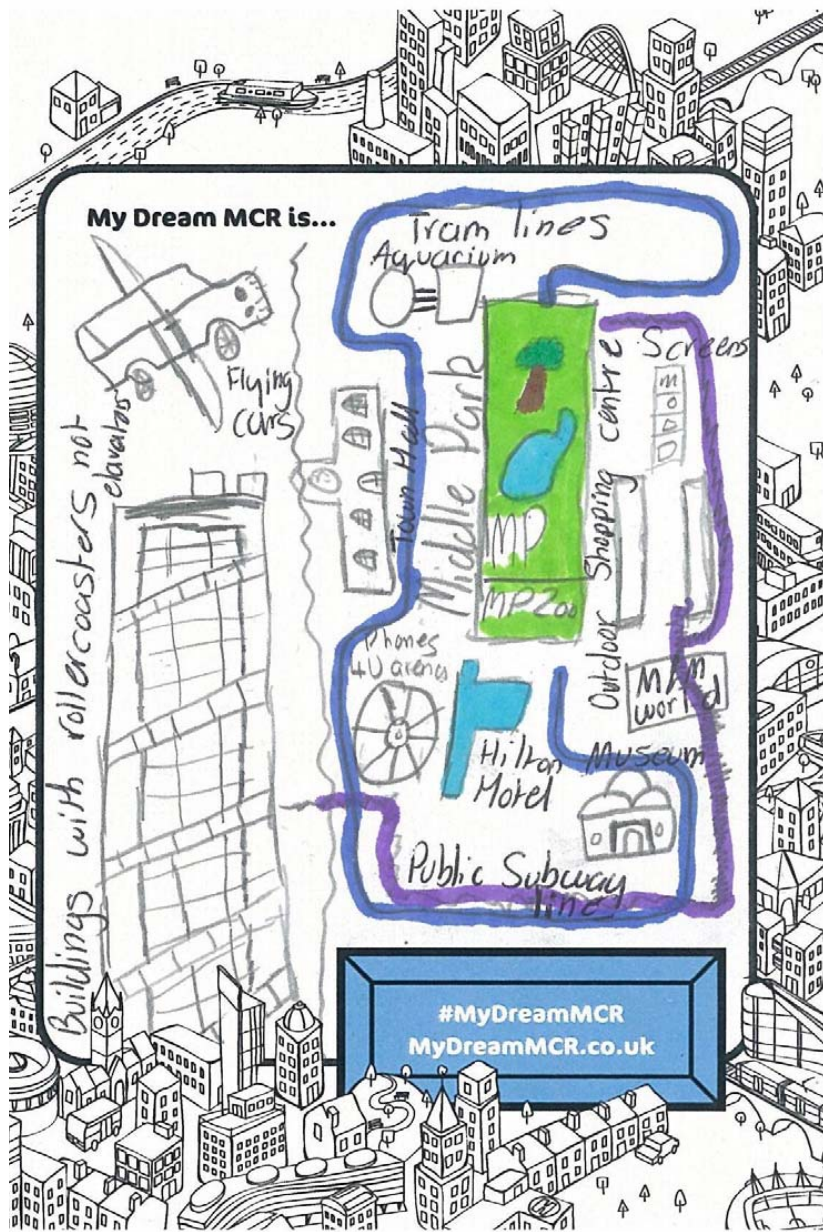 My Dream MCR is...
Flying
cars
Buildings with rollercoasters not
elavators
Tram lines
Aquarium
Town Hall
Middle Park
MP
MP Zoo
Outdoor Shopping centre
Screens
Phones
4U arena
Hilton
Hotel
M&M
world
Museum
Public Subway
line
#MyDreamMCR
MyDreamMCR.co.uk